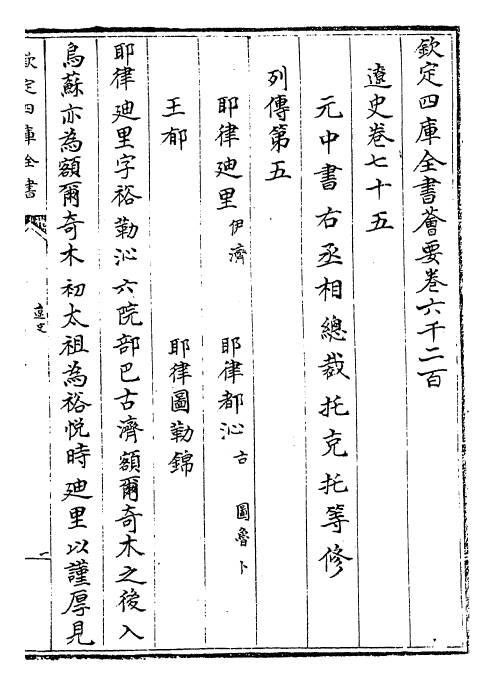 欽定四庫全書薈要卷六千二百
遼史卷七十五
元中書右丞相總裁托克托等修
列傳第五
耶律廸里伊濟 耶律都沁古 圖魯卜
王郁 耶律圖勒錦
耶律廸里字裕勒沁六院部巴古濟額爾奇木之後入
烏蘇亦為額爾奇木初太祖為裕悅時廸里以謹厚見
欽定四庫全書
遼史
一